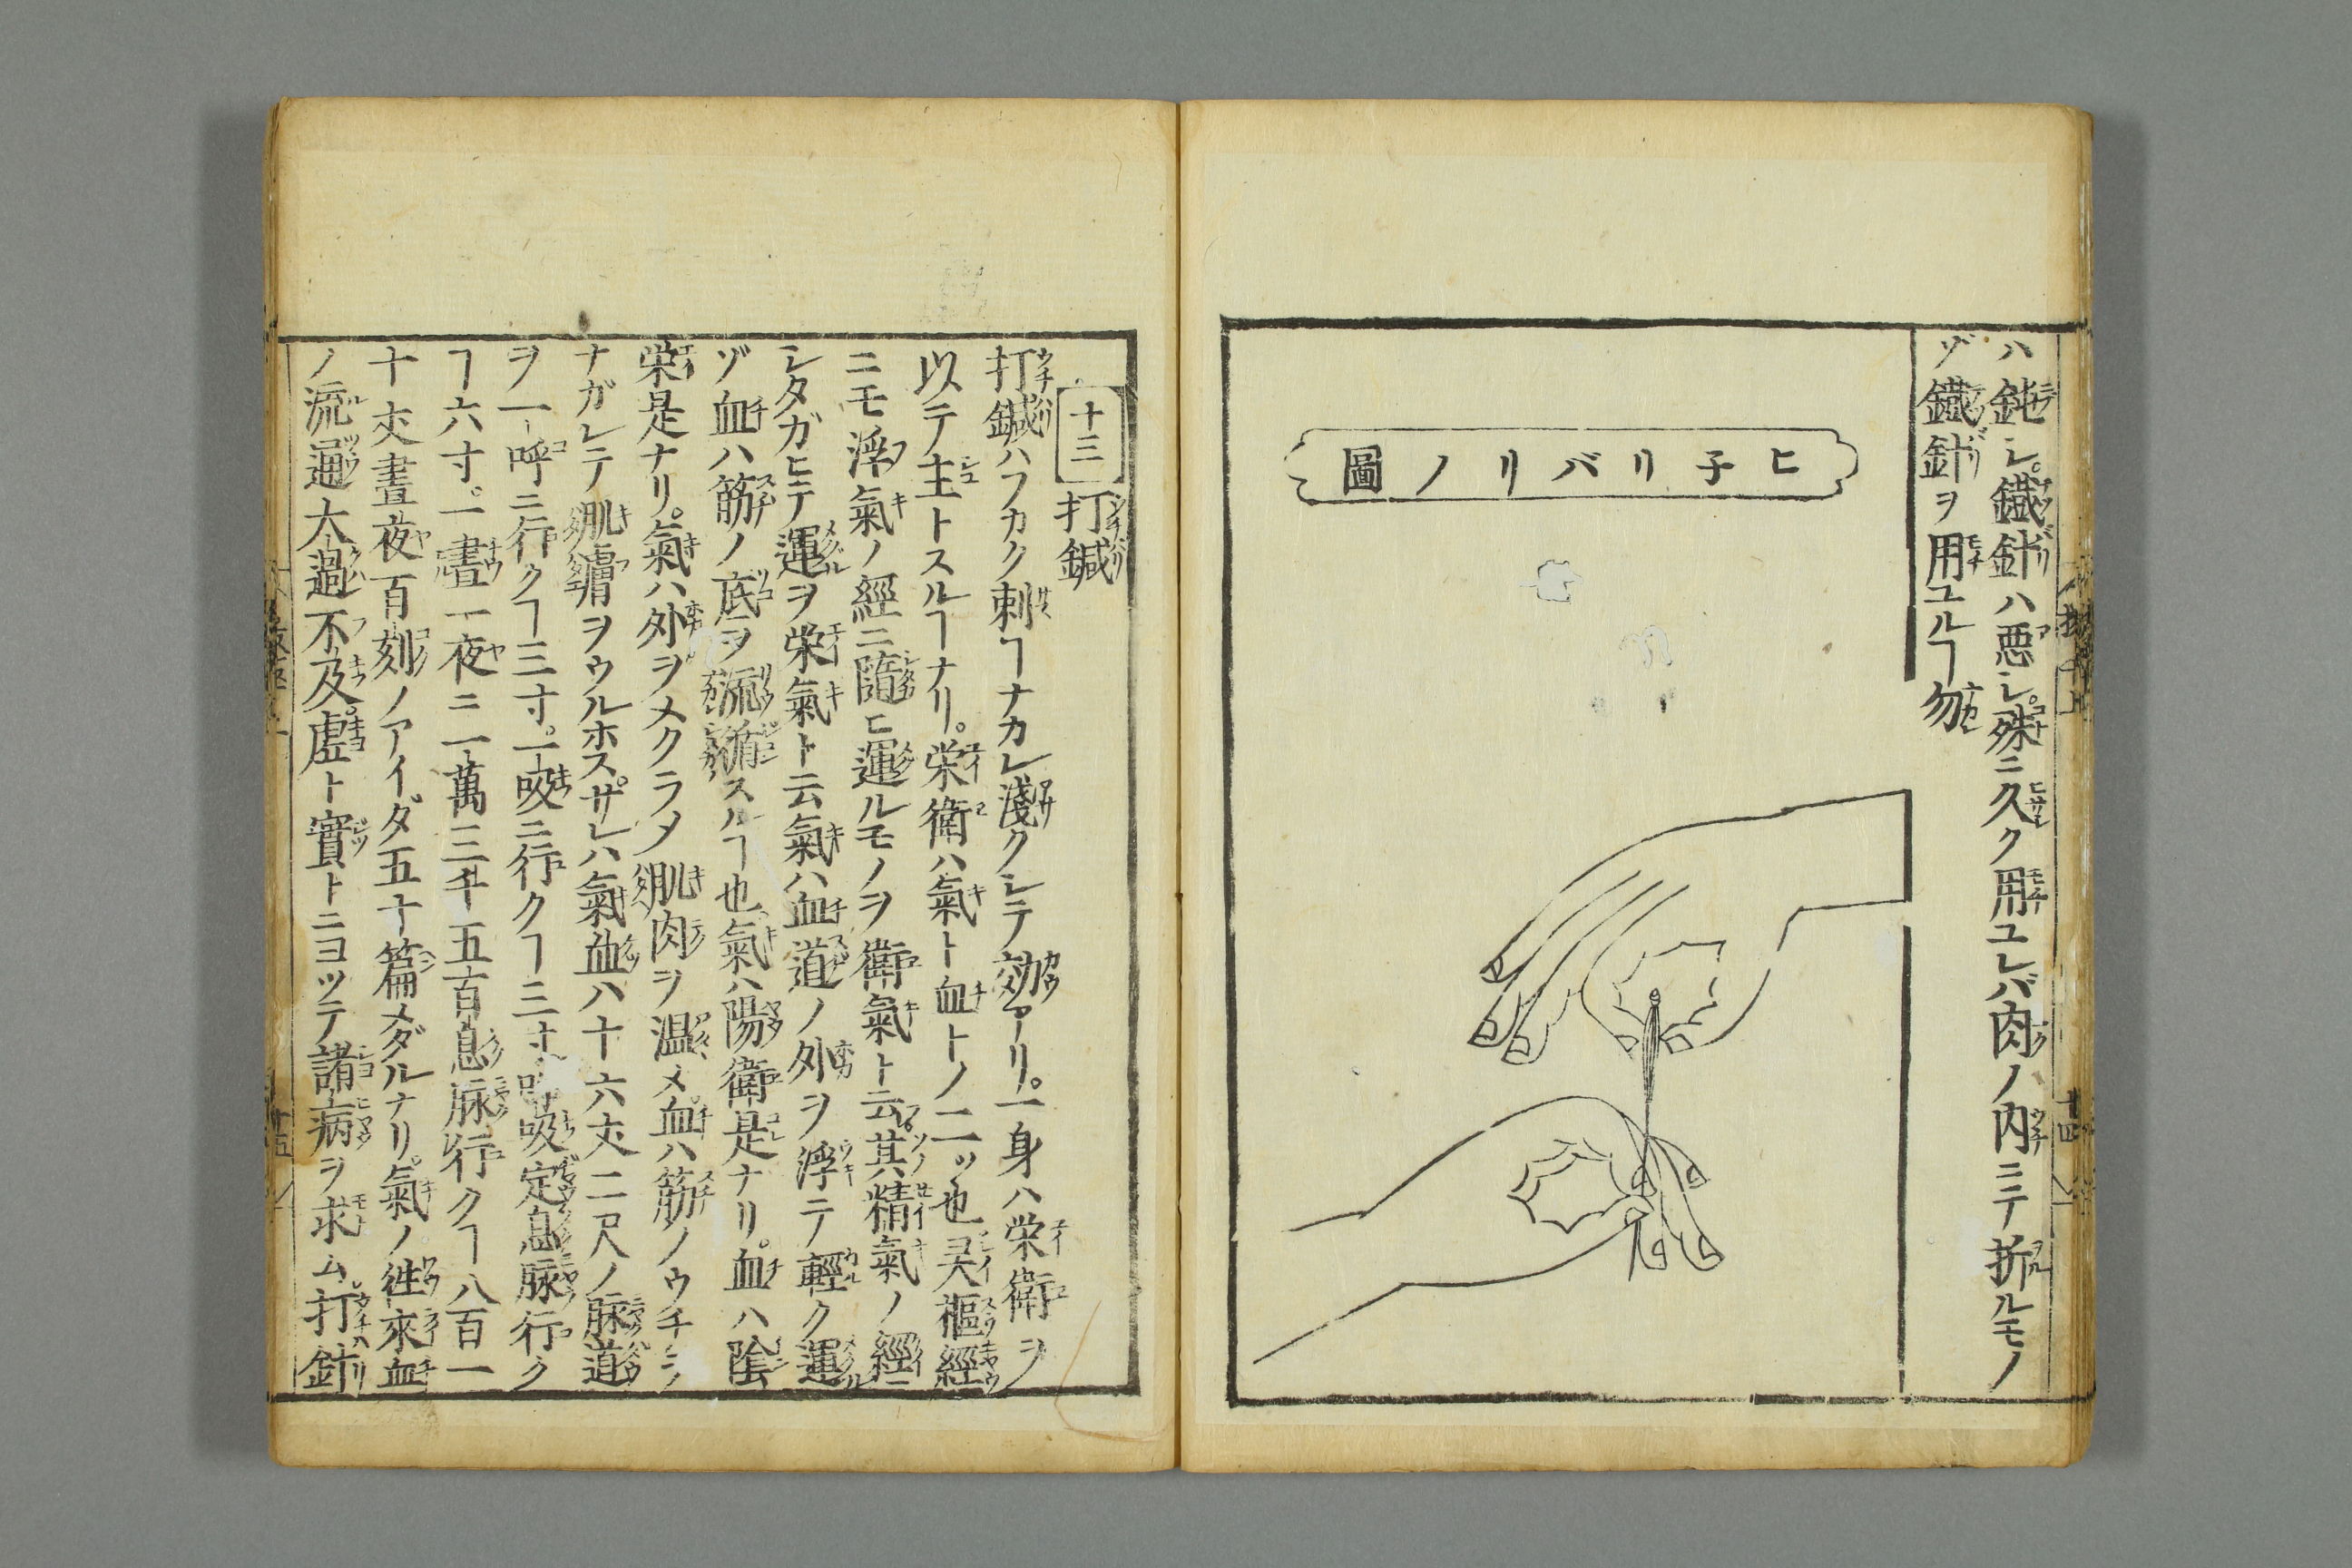 ハ鈍シ。鐵針ハ惡シ。殊ニ久ク用ユレバ肉ノ内ニテ折ルモノ
ゾ鐵針ヲ用ユルヿ勿
ヒ子リバリノ圖
十三 打鍼
打鍼ハフカク刺ヿナカレ淺クシテ効アリ。一身ハ栄衛ヲ
以テ主トスルヿナリ。栄衛ハ氣ト血トノ二ッ也灵樞經
ニモ浮氣ノ經ニ隨ヒ運ルモノヲ衛氣ト云。其精氣ノ經ニ
シタガヒテ運ヲ栄氣ト云氣ハ血道ノ外ヲ浮テ輕ク運
ゾ血ハ筋ノ底ヲ流循スルヿ也氣ハ陽衛是ナリ。血ハ陰
栄是ナリ。氣ハ外ヲメクラメ肌肉ヲ温メ。血ハ筋ノウチヲ
ナガレテ肌膚ヲウルホス。サレハ氣血ハ十六丈二尺ノ脉道
ヲ一呼ニ行クヿ三寸。一吸ニ行クヿ三寸呼吸定息脉行ク
ヿ六寸。一晝一夜ニ一萬三千五百息脉行クヿ八百一
十丈晝夜百刻ノアイダ五十篇メグルナリ。氣ノ徃來血
ノ流通太過不及。虚ト實トニヨッテ諸病ヲ求ム。打針
十四